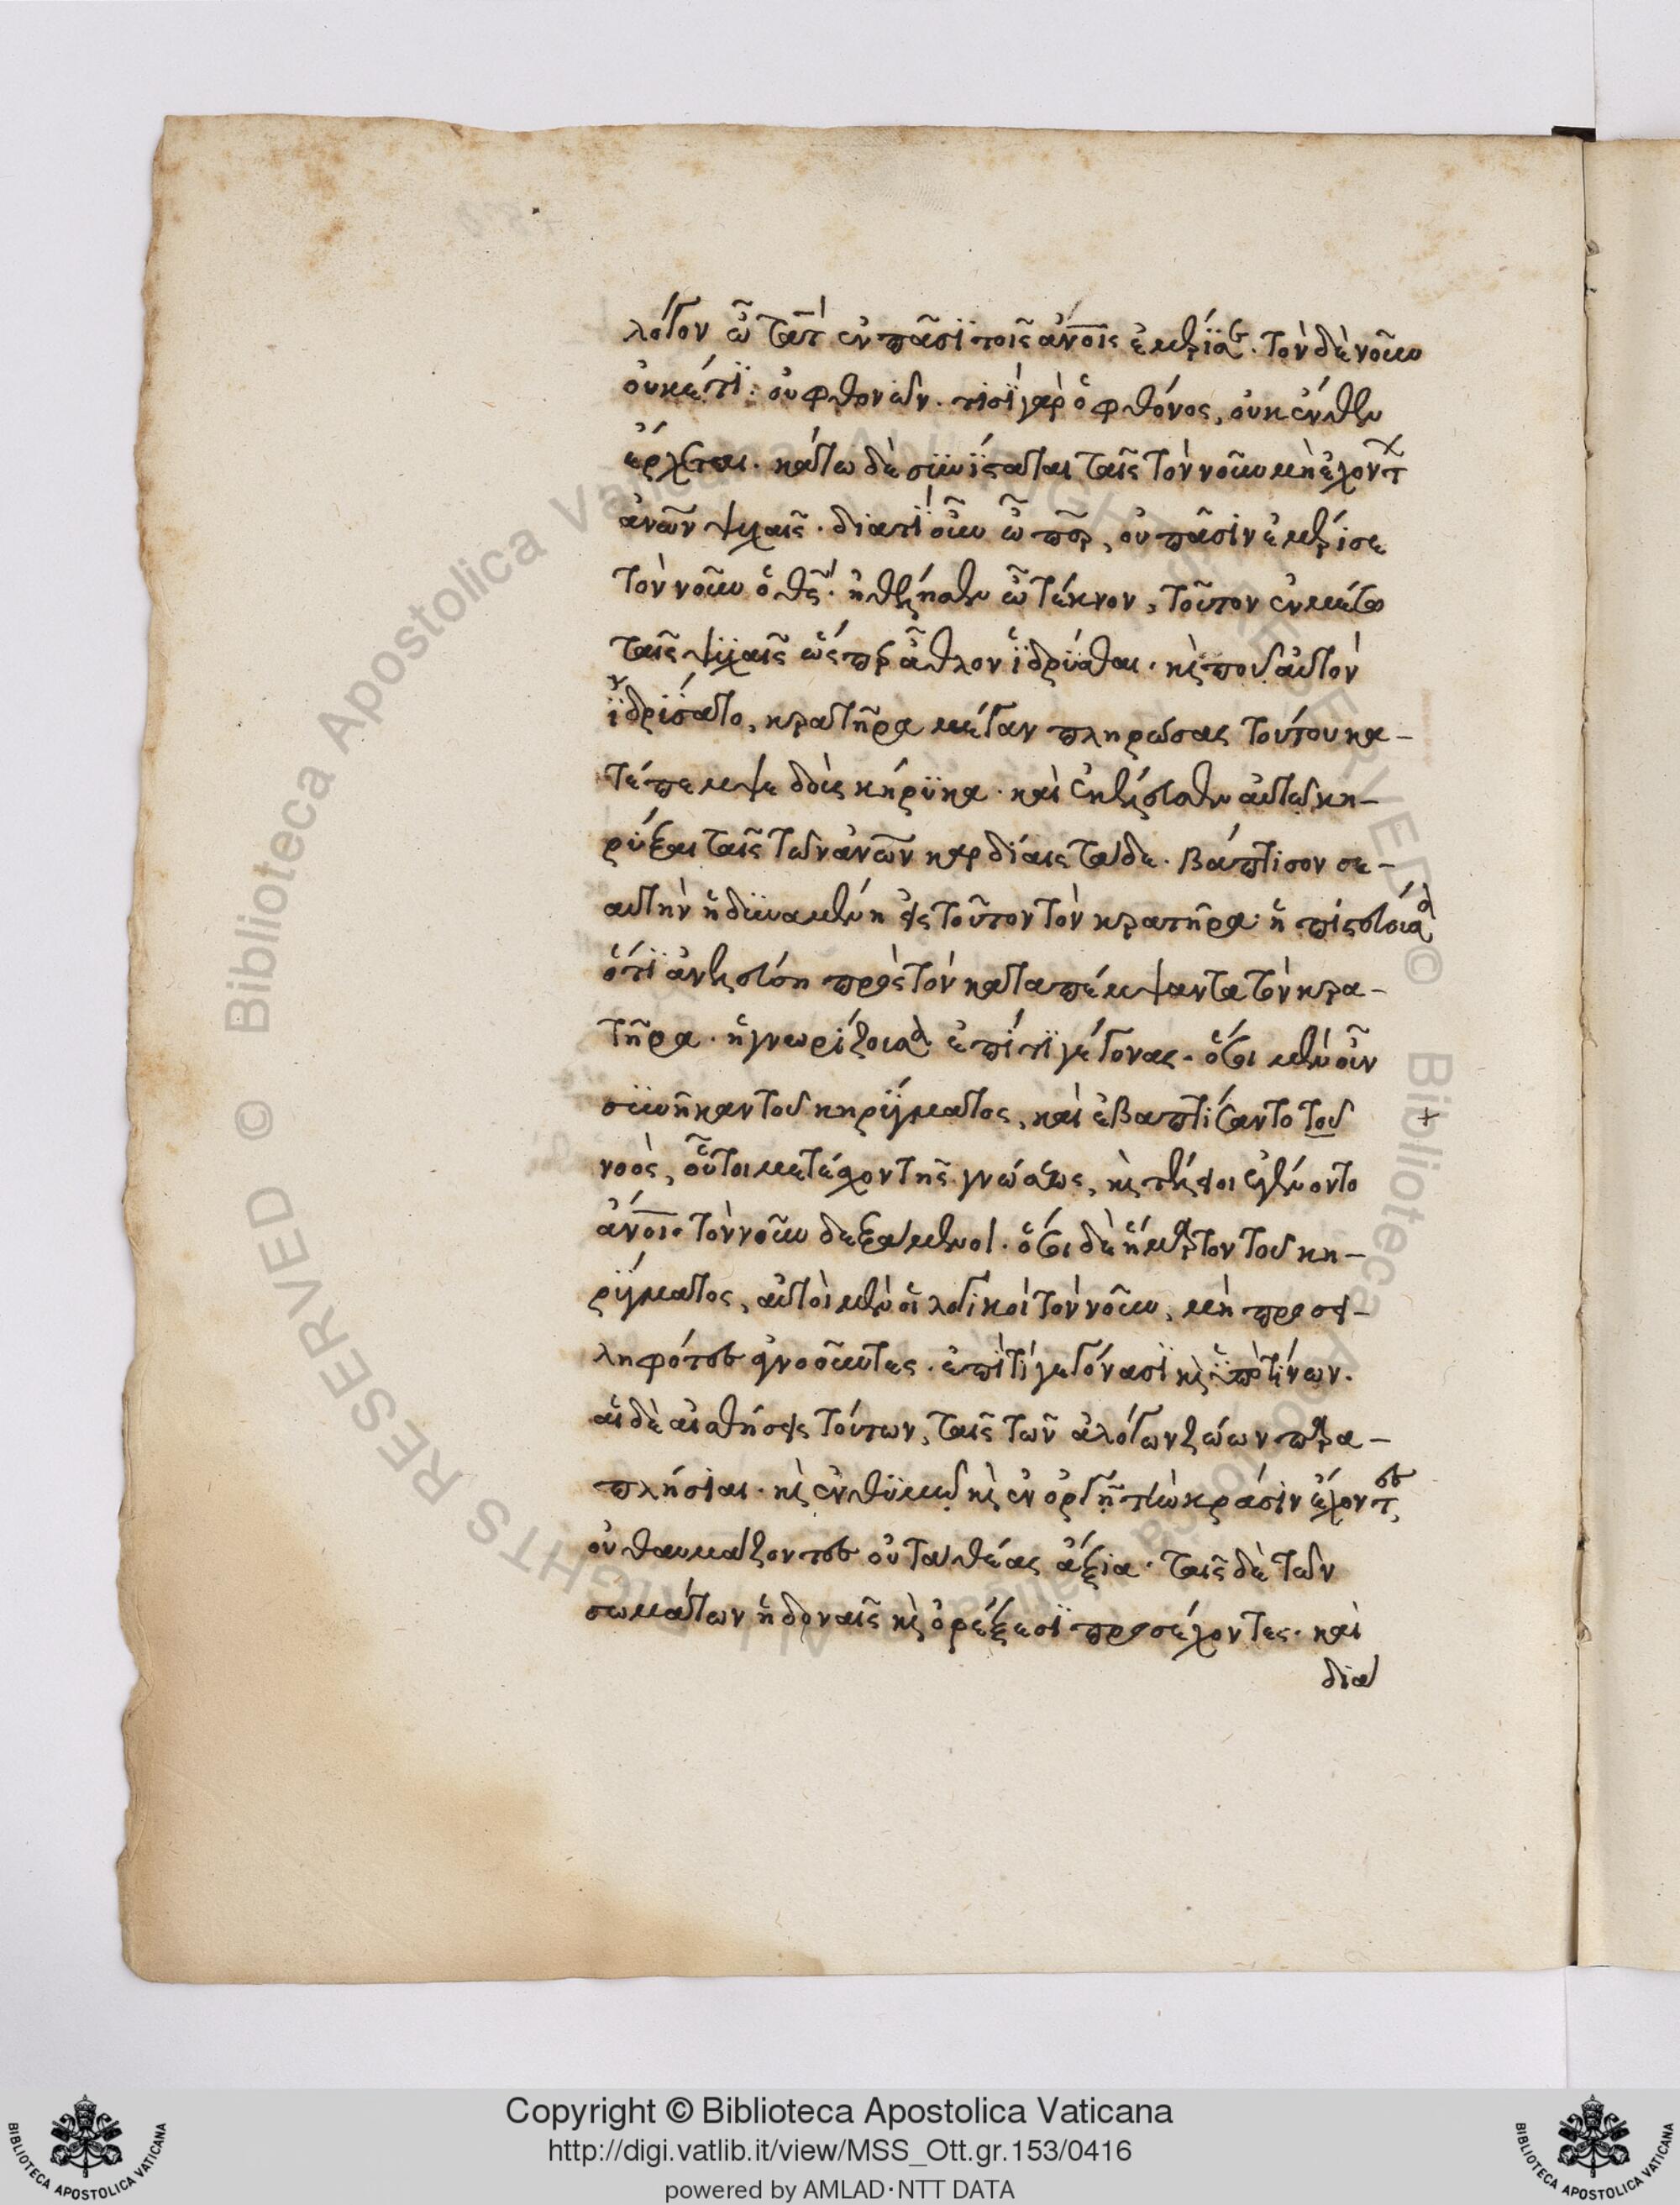 λόγον ὦ τὰτ ἐν πᾶσϊ τοῖς ἀν̅οις ἐμέρϊσε. τὸν δὲ νοῦν
οὐκέτϊ· οὐ φθονῶν. τισϊ γὰρ ὁ φθόνος, οὐκ ἔνθεν
ἔρχεται. κάτω δὲ συνΐσταται ταῖς τὸν νοῦν μὴ ἐχόντων
ἀν̅ων ψυχαῖς. διατί οὖν ὦ πε̅ρ, οὐ πᾶσιν ἐμέρισε
τὸν νοῦν ὁ θς̅. ἠθέλησεν ὦ τέκνον, τοῦτον ἐν μέσῳ
ταῖς ψυχαῖς ὥσπερ ἆθλον ἱδρύσθαι. καὶ ποῦ αὐτὸν
ἱδρύσατο, κρατῆρα μέγαν πληρώσας τούτου κα-
τέπεμψε δοὺς κήρυκα. καὶ ἐκέλευσεν αὐτῶ κη-
ρύξαι ταῖς τῶν ἀν̅ων καρδίαις τάδε. βάπτισον σε-
αυτὴν ἡ δυναμένη εἰς τοῦτον τὸν κρατῆρα· ἡ πιστεύουσα
ὅτϊ ἀνελεύση πρὸς τὸν καταπέμψαντα τὸν κρα-
τῆρα. ἡ γνωρίζουσα ἐπὶ τϊ γέγονας. ὅσοι μὲν οὖν
συνῆκαν τοῦ κηρύγματος, καὶ ἐβαπτίσαντο τοῦ
νοὸς, οὗτοι μετέσχον τῆς γνώσεως, καὶ τέλειοι ἐγένοντο
ἄν̅οι τὸν νοῦν δεξάμενοι. ὅσοι δὲ ἥμαρτον τοῦ κη-
ρύγματος, αὐτοὶ μὲν οἱ λογικοὶ τὸν νοῦν, μὴ προσει-
ληφότες ἀγνοοῦντες. ἐπὶ τί γεγόνασϊ καὶ ὑπὸ τίνων.
αἱ δὲ αἰσθήσεις τούτων, ταῖς τῶν ἀλόγων ζώων παρα-
πλήσιαι. καὶ ἐν θυμῷ καὶ ἐν ὀργῇ τὴν κράσιν ἔχοντες,
οὐ θαυμάζοντες οὐ τὰ θέας ἄξια. ταῖς δὲ τῶν
σωμάτων ἡδοναῖς καὶ ὀρέξεσϊ προσέχοντες. καὶ
διὰ
Copyright © Biblioteca Apostolica Vaticana
http://digi.vatlib.it/view/MSS_Ott.gr.153/0416
powered by AMLAD·NTT DATA